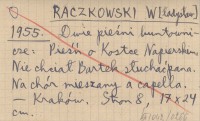 RACZKOWSKI W[ładysław]
1955. Dwie pieśni buntowni-
cze: Pieśń o Kostce Napierskim.
Nie chciał Bartek słuchać pana.
Na chór mieszany a capella.
— Kraków. Stron 8, 17 x 24
cm.